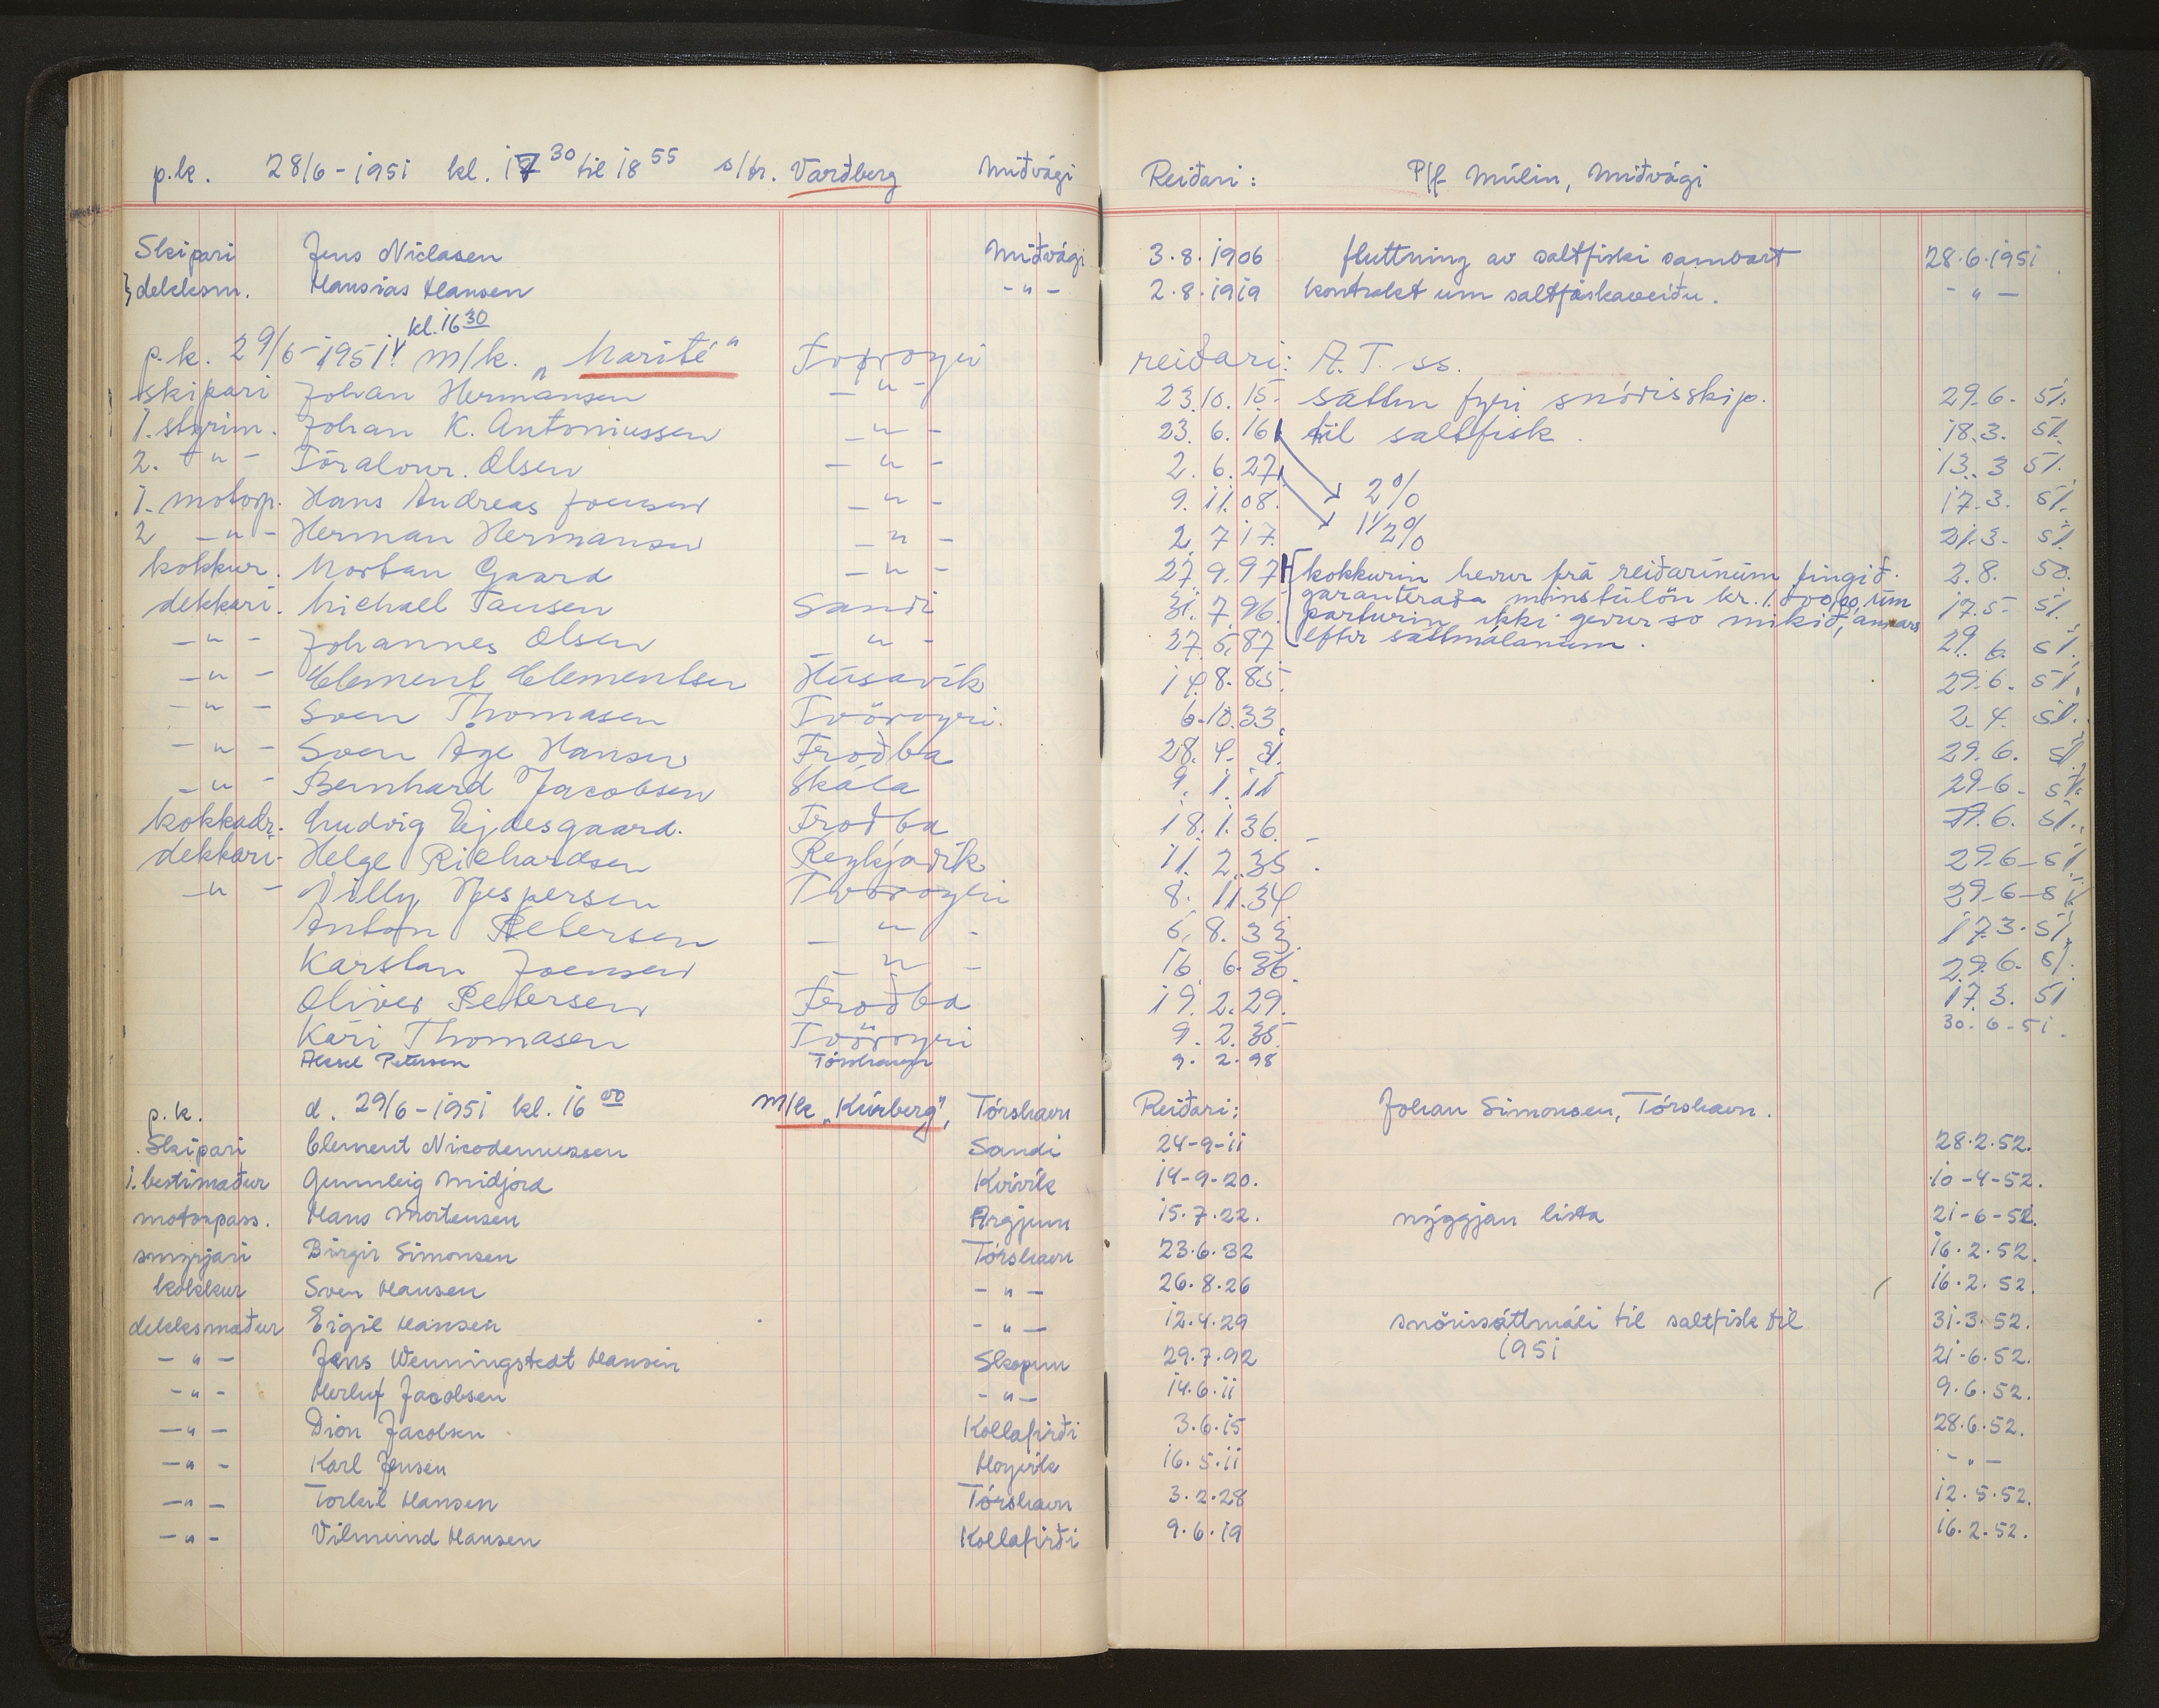 p.k. 28/6-1951 kl. 17 30 til 18 55 s/tr. Varðberg Miðvági Reiðari: P/f Múlin, Miðvági
Skipari Jens Niclasen Miðvági 3.8.1906 fluttning av saltfiski sambart 28.6.1951.
dekksm. Hansias Hansen -"- 2.8.1919 kontrakt um saltfiskaveiðu. -"-
kl. 16 30
p.k. 29/6-1951 m/k. „Marité" Tvøroyri reiðari: A.T. ss.
skipari Johan Hermansen -"- 23.10.15. sáttm fyri snórisskip. 29.6.51.
1. stýrim. Johan K. Antoniussen -"- 23.6.16 til saltfisk. 18.3.51.
2. -"- Tóralvur. Olsen -"- 2.6.27 13.3 51.
1. motorp. Hans Andreas Joensen -"- 9.11.08. 2% 17.3.51.
2 -"- Herman Hermansen -"- 2.7 17. 1 1/2% 21.3.51.
kokkur. Mortan Gaard -"- 27.9.97 kokkurin hevur frá reiðarinum fingið 2.8.50.
dekkari. Michael Tausen Sandi 31.7.96. garanteraða minstulön kr. 1.000,00, um 17.5.51.
parturin ikki gevur so mikið, annars
-"- Johannes Olsen -"- 27.5.87 eftir sáttmálanum. 29.6.51.
-"- Clement Clementsen Húsavík 14.8.85. 29.6.51.
-"- Sven Thomasen Tvöroyri. 6.10.33. 2.4.51.
-"- Sven Åge Hansen Froðba 28.4.31. 29.6.51.
-"- Bernhard Jacobsen Skála 9.1.11 29.6-51.
kokkadr. Ludvig Ejdesgaard. Froðba 18.1.36. 29.6.51.
dekkari- Helge Richardsen Reykjavík 11.2.35. 29.6-51.
-"- Villy Jespersen Tvøroyri 8.11.34 29-6-51
Anton Petersen -"- 6.8.33. 17.3.51.
Karstan Joensen -"- 16.6.36. 29.6.51.
Oliver Petersen Froðba 19.2.29. 17.3.51
Kári Thomasen Tvöroyri 9.2.35. 30-6-51.
Aksel Petersen Tórshavn 9.2.98
p.k. d. 29/6-1951 kl. 16 00 m/k „Kúrberg", Tórshavn Reiðari: Johan Simonsen, Tórshavn.
Skipari Clement Nicodemussen Sandi 24-9-11 28.2.52.
1. bestimaður Gunnleig Midjord Kvívík 14-9-20. 10-4-52.
motorpass. Hans Mortensen Argjum 15.7.22. nýggjan lista 21-6-52.
smyrjari Birgir Simonsen Tórshavn 23.6.32 16.2.52.
kokkur Sven Hansen -"- 26.8.26 16.2.52.
dekksmaður Eigil Hansen -"- 12.4.29 snórissáttmáli til saltfisk til 31.3.52.
-"- Jens Wenningstedt Hansen Skopun 29.7.92 1951 21-6.52.
-"- Herluf Jacobsen -"- 14.6.11 9.6.52.
-"- Dion Jacobsen Kollafirði 3.6.15 28.6.52.
-"- Karl Jensen Hoyvík 16.5.11 -"-
-"- Torkil Hansen Tórshavn 3.2.28 12.5.52.
-"- Vilmund Hansen Kollafirði 9.6.19 16.2.52.